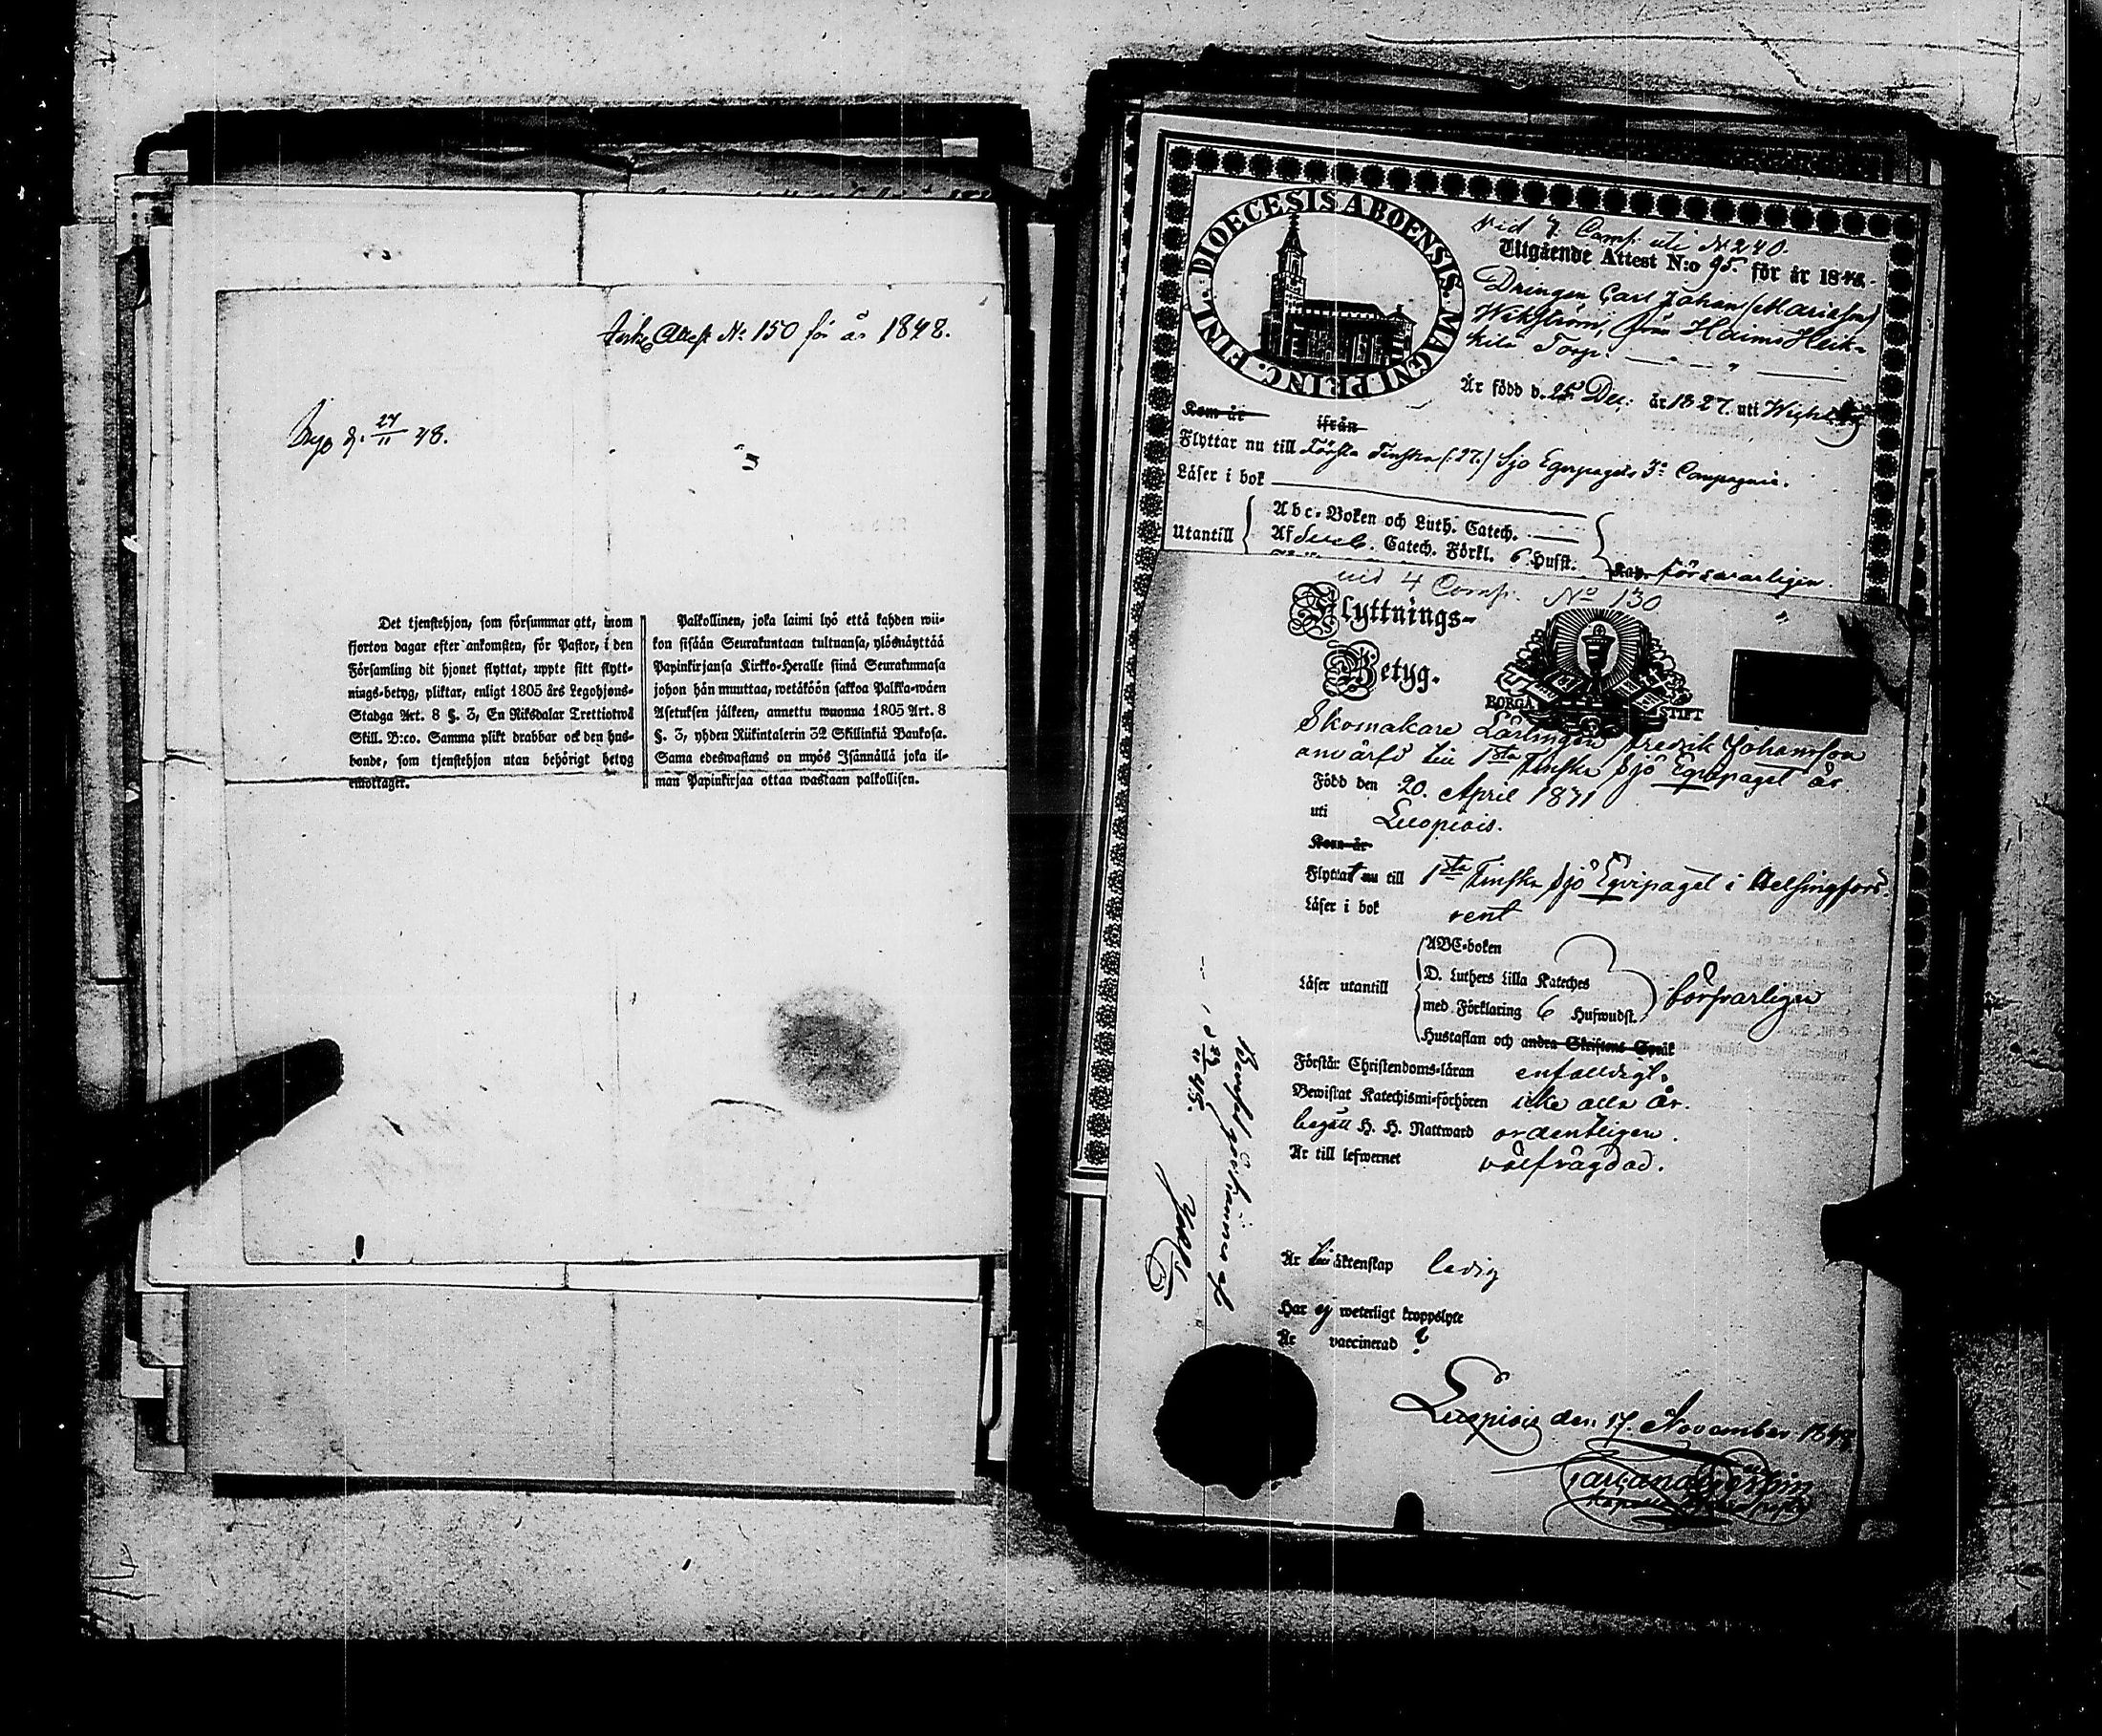 Attest N:o 150 för år 1848.
27/11 48.
Det tjenstehjon, som försummar att, inom
fjorton dagar efter ankomsten, för Pastor, i den
Församling dit hjonet flyttat, uppte sitt flytt-
nings-betyg, pliktar, enligt 1805 års Legohjons-
Stadga Art. 8 §. 3, En Riksdalar Trettiotwå
Skill. B:co. Samma plikt drabbar ock den hus-
bonde, som tjenstehjon utan behörigt betyg
emottager.
Palkollinen, joka laimi lyö että kahden wii-
kon sisään Seurakuntaan tultuansa, ylösnäyttää
Papinkirjansa Kirkko-Heralle siinä Seurakunnasa
johon hän muuttaa, wetäköön sakkoa Palkka-wäen
Asetuksen jälkeen, annettu wuonna 1805 Art. 8
§. 3, yhden Riikintalerin 32 Skillinkiä Bankosa.
Sama edeswastaus on myös Isännällä joka il-
man Papinkirjaa ottaa wastaan palkollisen.
DIOECESIS ABOENSIS. MAGNI PRINC. FINL.
Vid 7 Comp. uti N 240.
Utgående Attest N:o 95. för år 1848.
Drängen Carl Johan
Wikström, från Haimo Heik-
kilä Torp.
Är född d. 25 Dec: år 1827. uti
Kom år ifrån
Flyttar nu till Första Finska (:27.) Sjö Eqvipagets 3:e Compagnie.
Läser i bok
Utantill
Abc-Boken och Luth. Catech.
Af Catech. Förkl. 6 Hufst.
försvarligen.
vid 4 Comp. No 130
Flyttnings-
Betyg.
BORGÅ STIFT
Skomakare Lärlingen Fredrik Johansson
anvärfd till 1sta Finska Sjö Eqvipaget är
Född den 20. April 1831
uti Luopiois.
Kom år
Flyttat nu till 1sta Finska Sjö Eqvipaget i Helsingfors.
Läser i bok rent
Läser utantill
ABC-boken
D. Luthers Lilla Kateches
med Förklaring 6 Hufwudst.
Hustaflan och andra Skriftens Språk
försvarligen
Förstår Christendoms-läran enfaldigt.
Bewistat Katechismi-förhören icke alla år.
begått H. H. Nattward ordentligen.
Är till lefwernet välfrägdad.
Är till äktenskap ledig
Har ej weterligt kroppslyte
Är vaccinerad ?
Luopiois den 17. November 1848